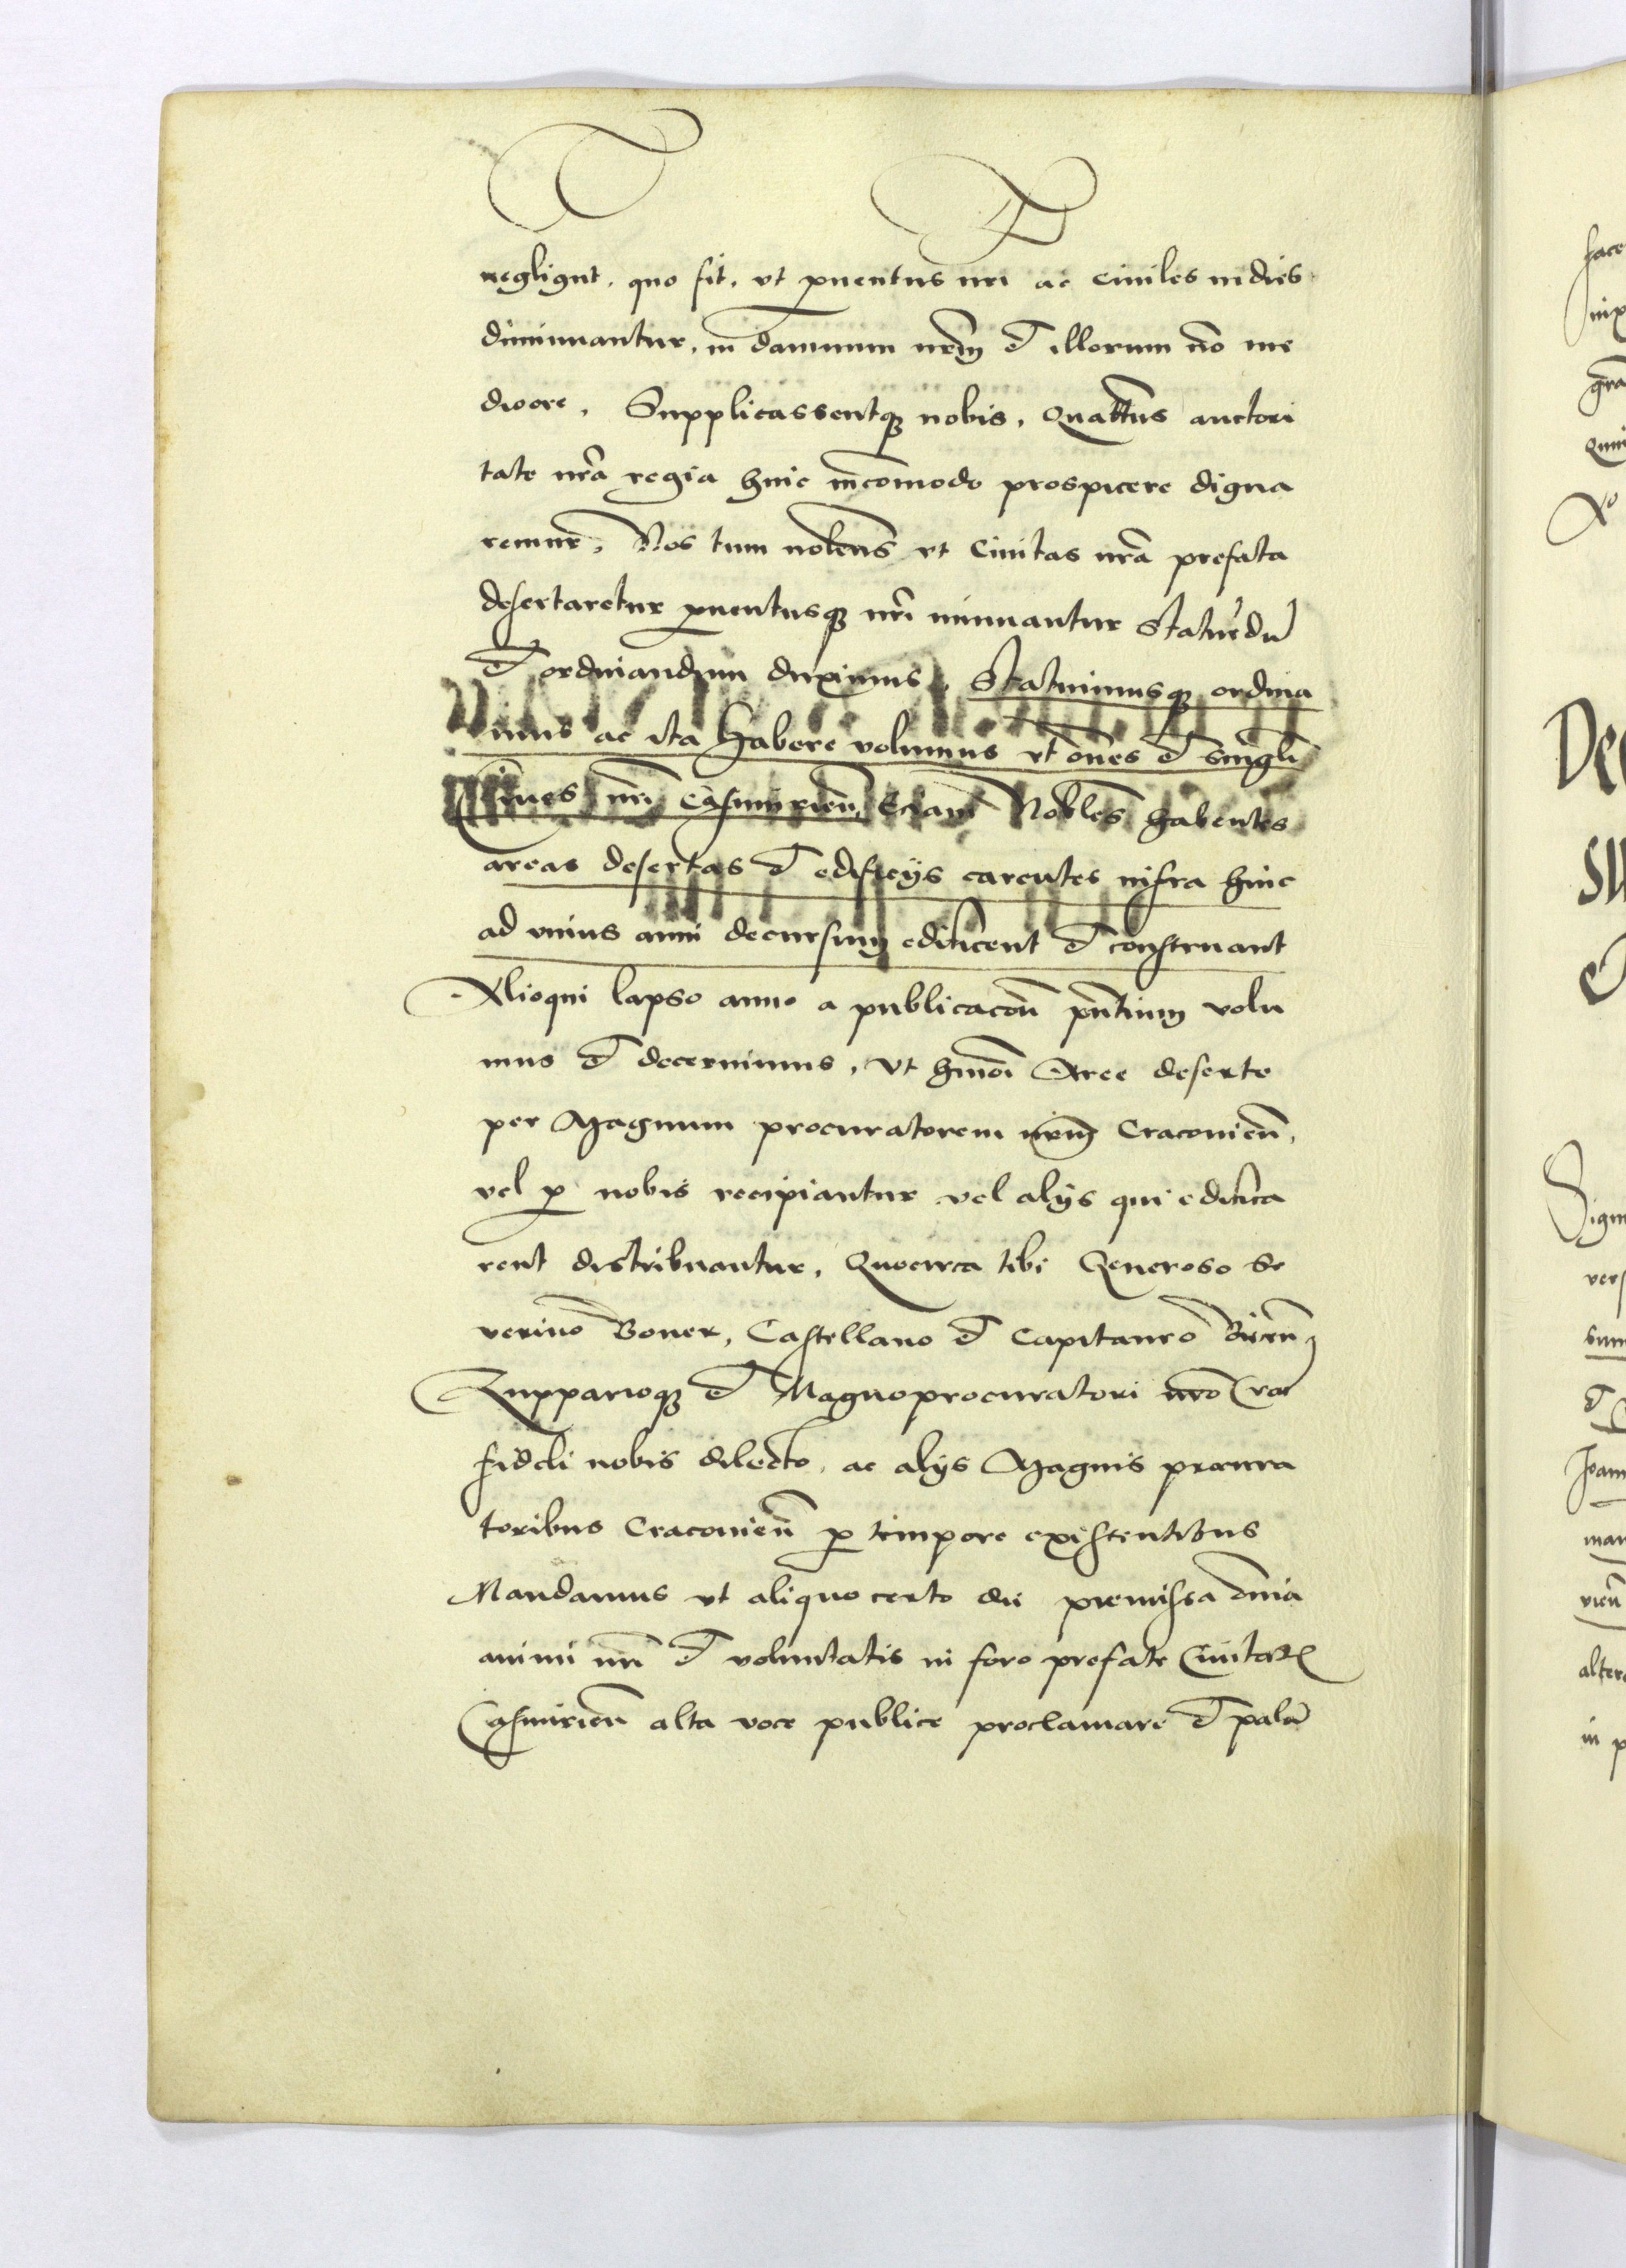 negligūt, quo fit, vt ꝓuentus nrī ac Ciuiles indies
diminuantur, in damnum nrm̄ et illorum nō me
diocre, Supplicassentqȝ nobis, Quatus̄ auctori
tate nrā regia huic incōmodo prospicere digna
remur, Nos tum nolens̄ vt Ciuitas nrā prefata
desertaretur ꝓuentusqȝ nrī minuantur Statuēdū
et ordinandum duximus, Statuimusqȝ ordina
mus ac ita habere volumus vt om̄es et singlī
Ciues nrī Casimirien̄, Eciam Nobles̄ habentes
areas desertas et edificijs carentes infra hinc
ad vnius anni decursum edificent et construant
Alioqui lapso anno a publicacōn̄ pn̄tium volu
mus et decernimus, vt hmōi Aree deserte
per Magnum procuratorem nrm̄ Cracouien̄,
vel ꝓ nobis recipiantur vel alijs qui edifica
rent distribuantur, Quocirca tibi Generoso Se
verino Boner, Castellano et Capitaneo Biecen̄
Zupparioqȝ et Magnoprocuratori nrō Crac
fideli nobis dilecto, ac alijs Magnis procura
toribus Cracouien̄ ꝓ tempore existentibus
Mandamus vt aliquo certo die premissa om̄ia
animi nrī et voluntatis in foro prefate Ciuitatis
Casimirien̄ alta voce publice proclamare et palā